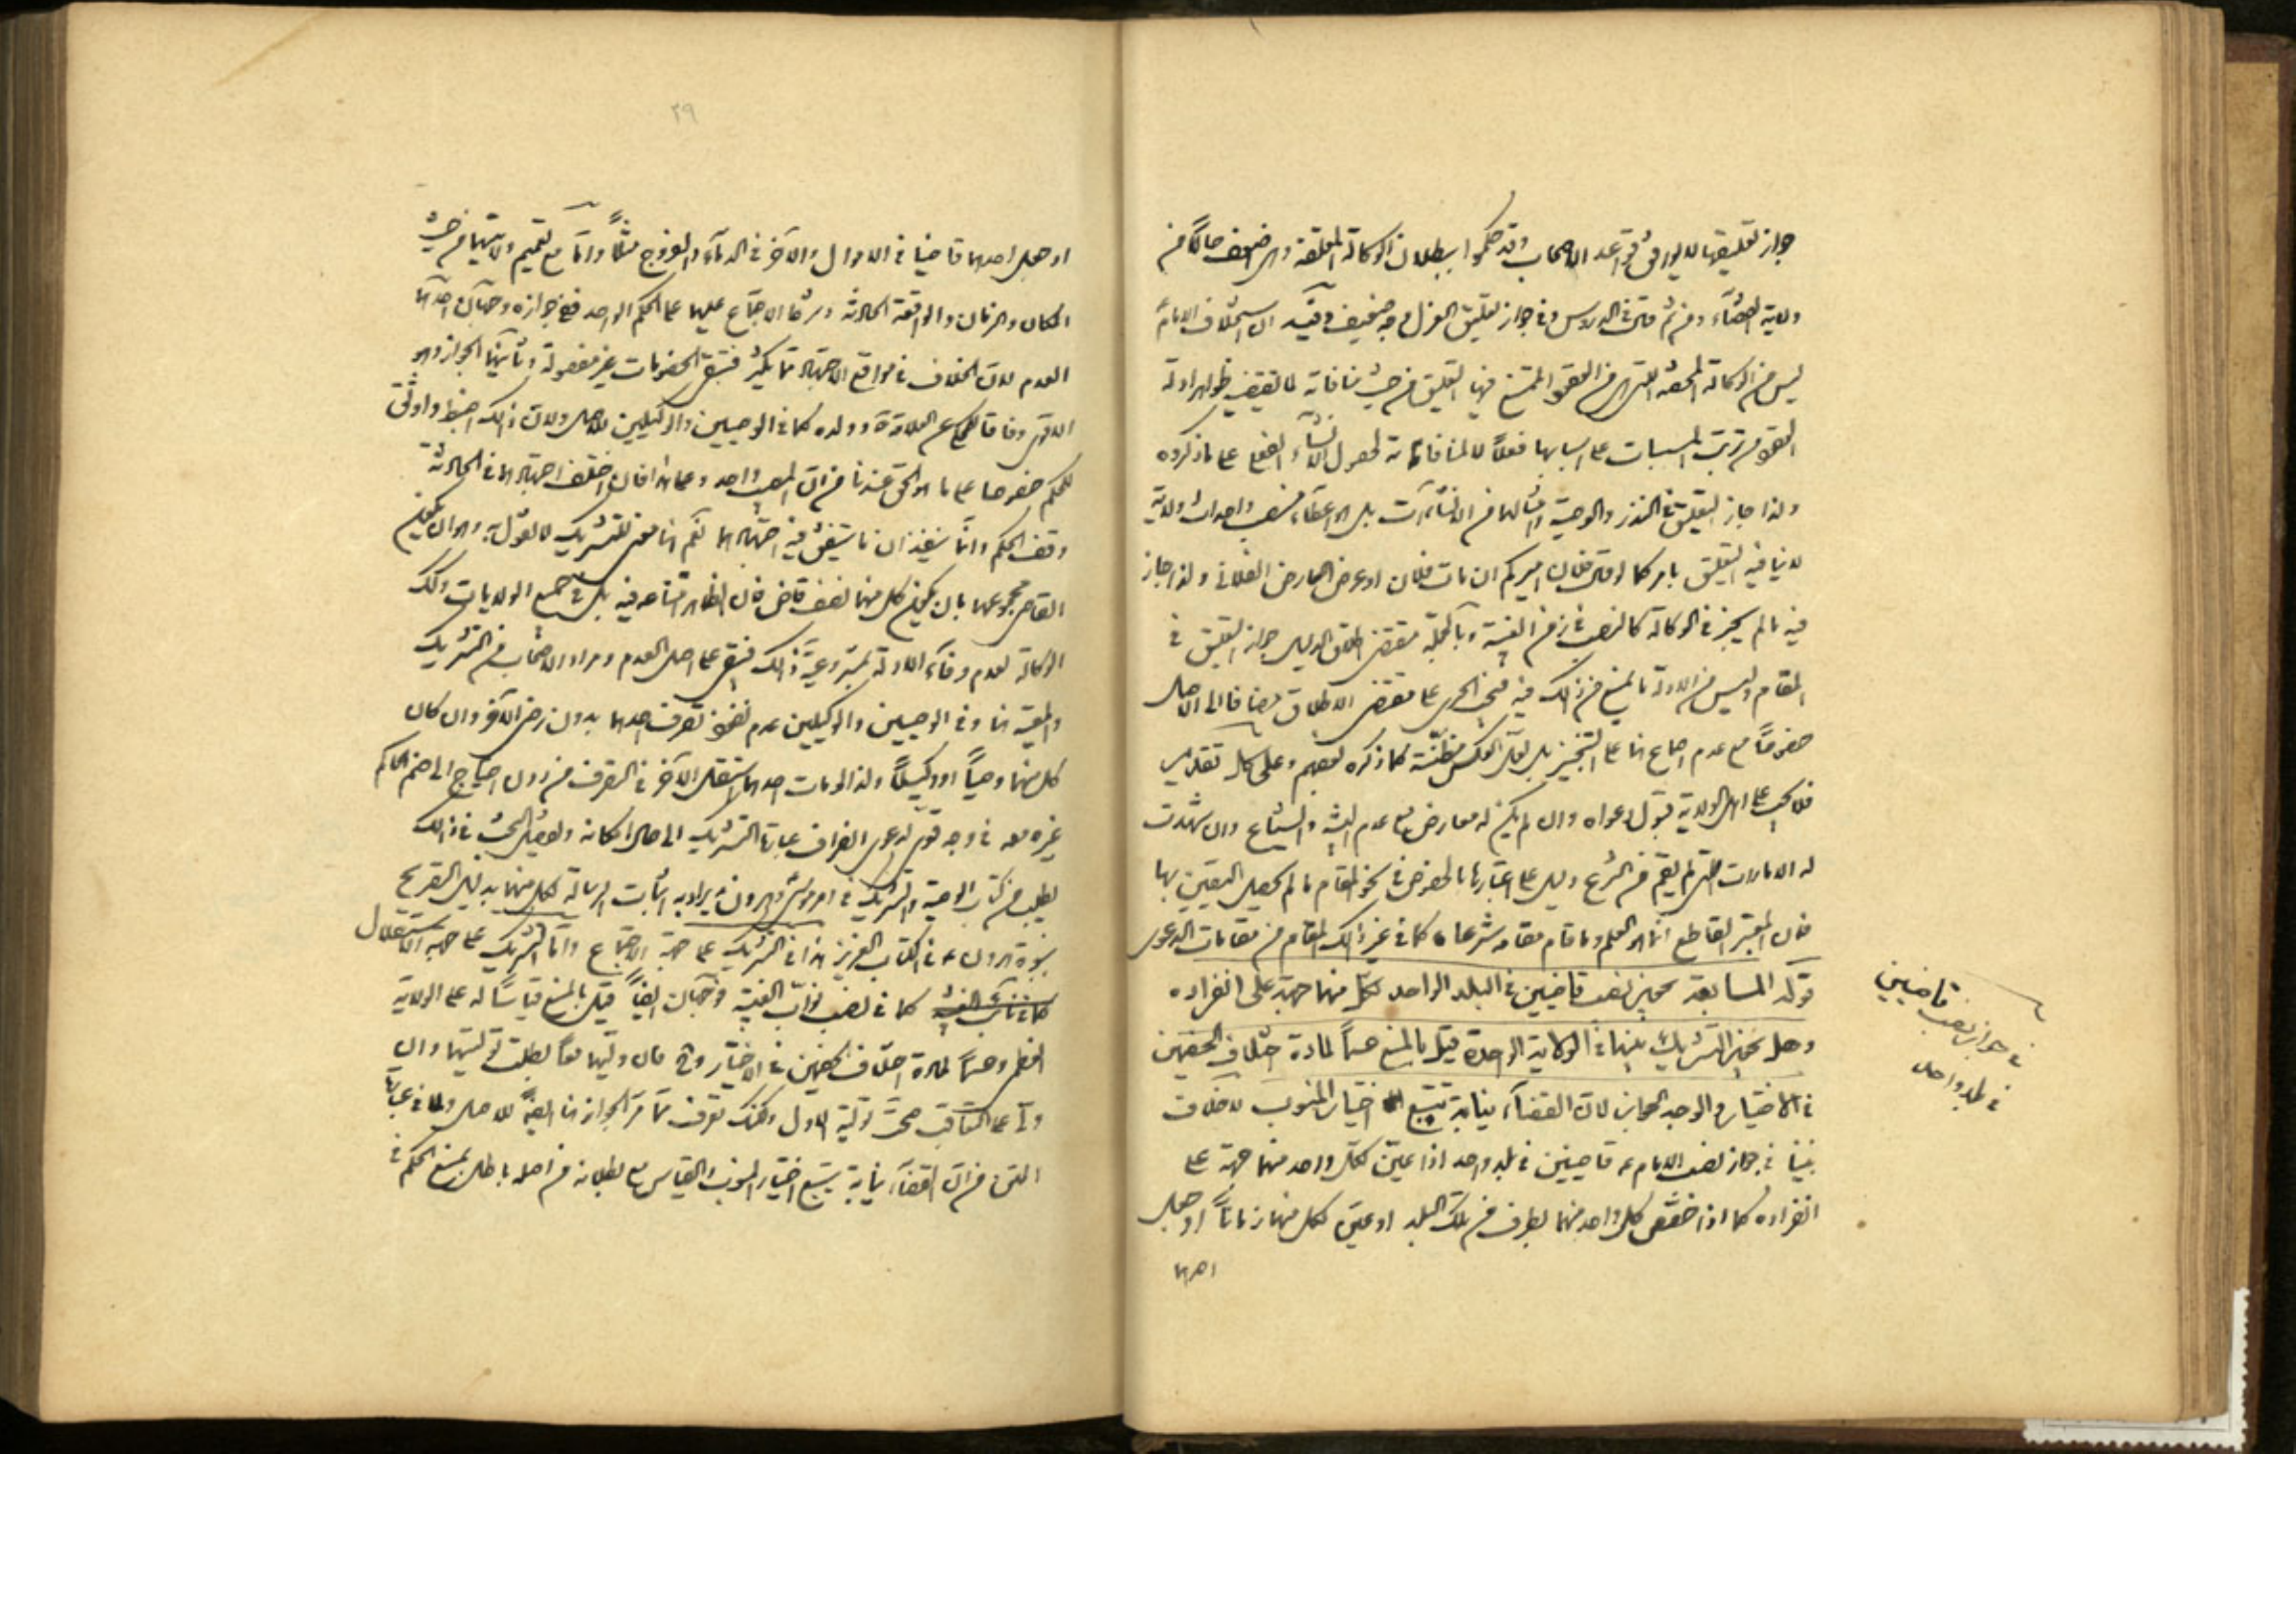 جواز تعليقها لا يوافق قواعد الاصحاب وقد حكموا ببطلان الوكالة المعلقة وهي اضعف حالاً من
ولاية القضاء ومن ثم قال في الدروس وفي جواز تعليق العزل وجه ضعيف وفيه ان استخلاف الامام
ليس من الوكالة المحضة التي هي من العقود الممتنع فيها التعليق من حيث منافاته لما يقتضيه ظواهر ادلة
العقود من ترتب المسببات على اسبابها فعلاً لا لمنافاته لحصول الانشاء الفعلي على ما ذكروه
ولذا جاز التعليق في النذر والوصية وامثالهما من الانشاءات بل هو اعطاء منصب واحداث ولاية
لا ينافيه التعليق بامر كما لو قال فلان اميركم ان مات فلان او عرض العارض الفلاني ولذا جاز
فيه ما لم يجز في الوكالة كالنصب في زمن الغيبة وبالجملة مقتضى اطلاق الدليل جواز التعليق في
المقام وليس في الادلة ما يمنع من ذلك فيه فيجب الجري على مقتضى الاطلاق مضافا الى الاصل
خصوصاً مع عدم اجماع هنا على التنجيز بل لعل العكس مظنته كما ذكره بعضهم وعلى كل تقدير
فلا يجب على اهل الولاية قبول دعواه وان لم يكن له معارض مع عدم البينة والشياع وان شهدت
له الامارات التي لم يقم من الشرع دليل على اعتبارها بالخصوص في نحو المقام ما لم يحصل اليقين بها
فان المعتبر القاطع انما هو العلم وما قام مقامه شرعا كما في غير ذلك المقام من مقامات الدعوى
قوله المسابعة يجوز نصب قاضيين في البلد الواحد لكل منهما جهة على انفراده
وهل يجوز التشريك بينهما في الولاية الواحدة قيل بالمنع حسماً لمادة اختلاف الخصمين
في الاختيار والوجه الجواز لان القضاء نيابة تتبع اختيار المنوب لا خلاف
بيننا في جواز نصب الامام ع قاضيين في بلد واحد اذا عيّن لكل واحد منهما جهة على
انفراده كما اذا خصّص كل واحد منهما بطرف من تلك البلد او عيّن لكل منهما زماناً او جعل
احدهما
في جواز نصب قاضيين
في بلد واحد
٢٩
او جعل احدهما قاضيا في الاموال والآخر في الدماء والفروج مثلاً واما مع تعميم ولايتهما من حيث
المكان والزمان والواقعة الحادثة وشرط الاجتماع عليهما على الحكم الواحد ففي جوازه وجهان احدهما
العدم لان الخلاف في مواقع الاجتهاد مما يكثر فتبقى الخصومات غير مفصولة وثانيهما الجواز وهو
الاقوى وفاقا للمحكي عن العلامة وولده كما في الوصيين والوكيلين للاصل ولان ذلك اضبط واوثق
للحكم خصوصا على ما هو الحق عندنا من ان المصيب واحد وعلى هذا فان اختلف اجتهادهما في الحادثة
وقف الحكم وانما ينفذ ان ما يتفق فيه اجتهادهما نعم هنا معنى للتشريك لا نقول به وهو ان يكون
القاضي مجموعهما بان يكون كل منهما نصف قاض فان الظاهر امتناعه فيه بل في جميع الولايات وكذلك
الوكالة لعدم وفاء الادلة بمشروعية ذلك فيبقى على اصل العدم ومراد الاصحاب من التشريك
والمعية هنا وفي الوصيين والوكيلين عدم نفوذ تصرف احدهما بدون رضى الآخر وان كان
كل منهما وصياً او وكيلاً ولذا لو مات احدهما استقل الآخر في التصرف من دون احتياج الى ضم الحاكم
غيره معه في وجه قوي لدعوى انصراف عبارة التشريك الى حال امكانه وتفصيل البحث في ذلك
يطلب من كتاب الوصية والتشريك في امر موسى وهرون يراد به اثبات الرسالة لكل منهما بدليل التصريح
بنبوة هرون ع في الكتاب العزيز هذا في التشريك على جهة الاجتماع واما التشريك على جهة الاستقلال
كما في نصب نواب الغيبة فوجهان ايضاً قيل بالمنع قياسا له على الولاية
العظمى وحسماً لمادة اختلاف الخصمين في الاختيار وح فان ولّيهما معاً بطلت توليتهما وان
ولّى على التعاقب صحت تولية الاول ولكنك تعرف مما مرّ الجواز هنا ايضاً للاصل ولما في عبارة
المتن من ان القضاء نيابة يتبع اختيار المنوب والقياس مع بطلانه من اصله باطل بمنع الحكم في